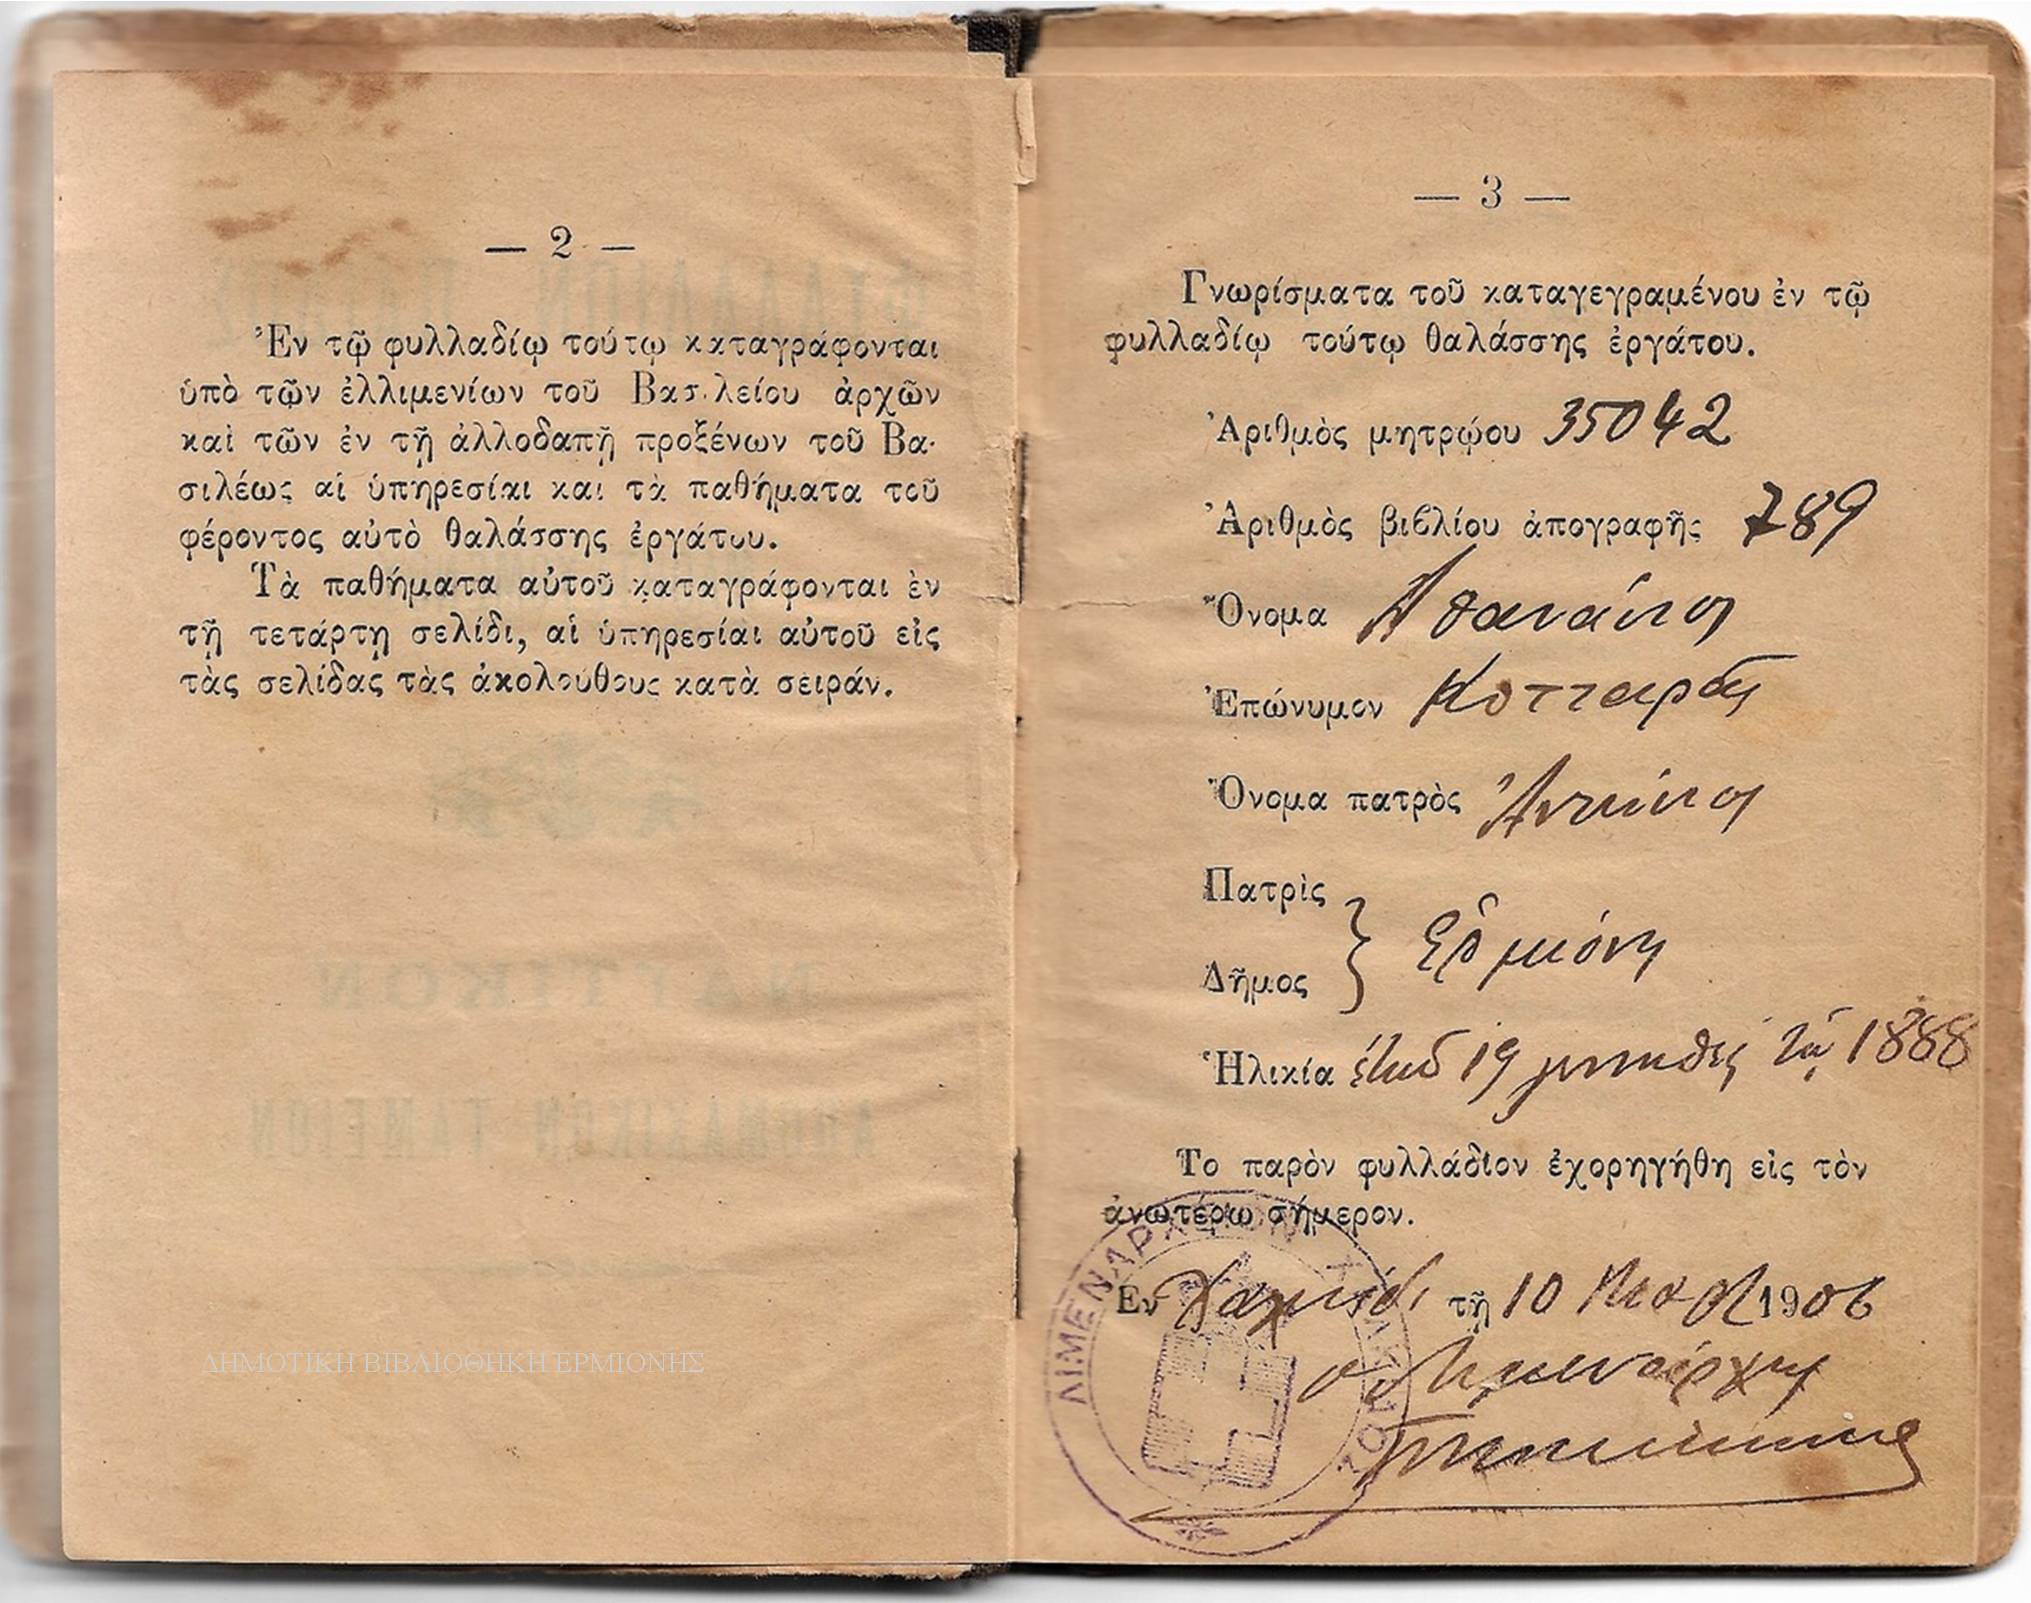 — 2 —
Ἐν τῷ φυλλαδίῳ τούτῳ καταγράφονται
ὑπὸ τῶν ἐλλιμενίων τοῦ Βασιλείου ἀρχῶν
καὶ τῶν ἐν τῇ ἀλλοδαπῇ προξένων τοῦ Βα-
σιλέως αἱ ὑπηρεσίαι και τὰ παθήματα τοῦ
φέροντος αὐτὸ θαλάσσης ἐργάτου.
Τὰ παθήματα αὐτοῦ καταγράφονται ἐν
τῇ τετάρτῃ σελίδι, αἱ ὑπηρεσίαι αὐτοῦ εἰς
τὰς σελίδας τὰς ἀκολούθους κατὰ σειράν.
ΔΗΜΟΤΙΚΗ ΒΙΒΛΙΟΘΗΚΗ ΕΡΜΙΟΝΗΣ
— 3 —
Γνωρίσματα τοῦ καταγεγραμένου ἐν τῷ
φυλλαδίῳ τούτῳ θαλάσσης ἐργάτου.
Ἀριθμὸς μητρῴου 35042
Ἀριθμὸς βιβλίου ἀπογραφῆς 789
Ὄνομα Ἀθανάσιος
Ἐπώνυμον Κοτταρᾶς
Ὄνομα πατρὸς Ἀντώνιος
Πατρὶς
Ἑρμιόνη
Δῆμος
Ἡλικία ἐτῶν 19 γεννηθεὶς τῷ 1888
Το παρὸν φυλλάδιον ἐχορηγήθη εἰς τὸν
ἀνωτέρω σήμερον.
Ἐν τῇ 10 1906
ὁ Λιμενάρχης
ΛΙΜΕΝΑΡΧΕΙΟΝ